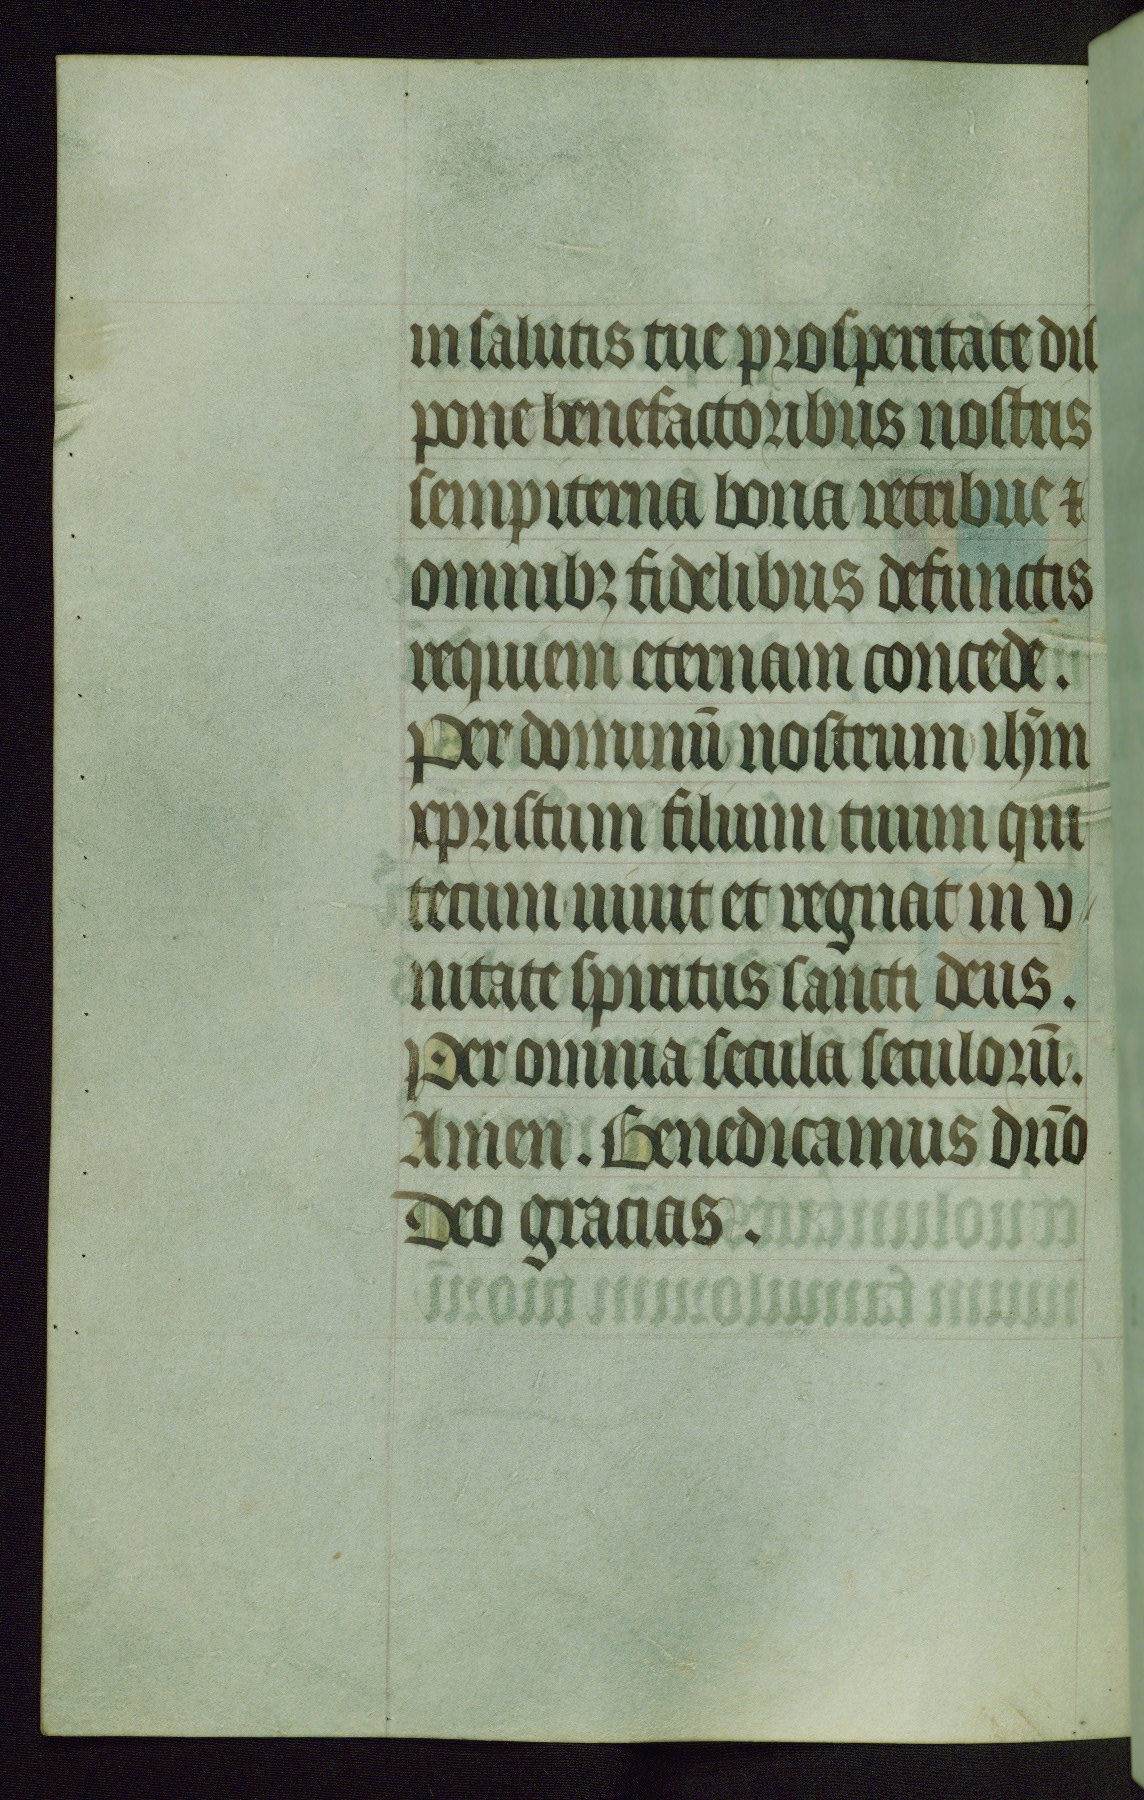 in salutis tue prosperitate dis
pone benefactoribus nostris
sempiterna bona retribue ⁊
omnibꝫ fidelibus defunctis
requiem eternam concede.
Per dominū nostrum ihm̄
xpristum filium tuum qui
tecum uiuit et regnat in v
nitate spiritus sancti deus.
Per omnia secula seculorū.
Amen. Benedicamus dn̄o
Deo gracias.